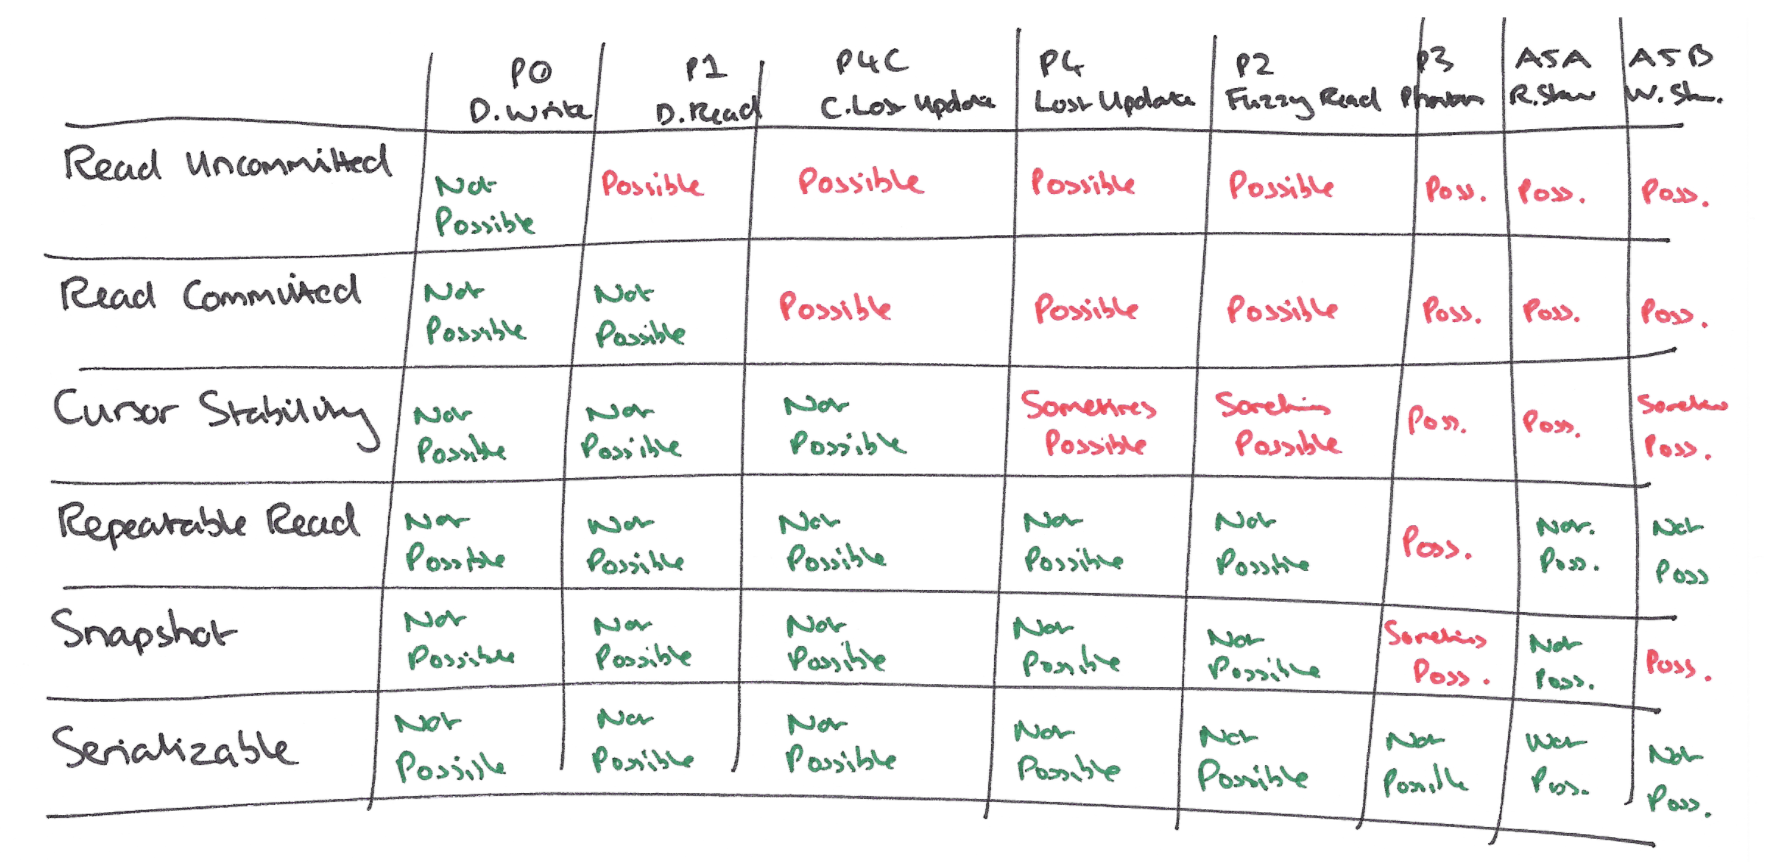 P0 P1 P4C P4 P2 P3 A5A A5B
D. Write D. Read C. Lost Update Lost Update Fuzzy Read Phantom R. Skew W. Sk.
Read Uncommitted
Not Possible Possible Possible Possible Possible Poss. Poss. Poss.
Read Committed
Not Possible Not Possible Possible Possible Possible Poss. Poss. Poss.
Cursor Stability
Not Possible Not Possible Not Possible Sometimes Possible Sometimes Possible Poss. Poss. Sometimes Poss.
Repeatable Read
Not Possible Not Possible Not Possible Not Possible Not Possible Poss. Not. Poss. Not Poss
Snapshot
Not Possible Not Possible Not Possible Not Possible Not Possible Sometimes Poss. Not Poss. Poss.
Serializable
Not Possible Not Possible Not Possible Not Possible Not Possible Not Possible Not Poss. Not Poss.